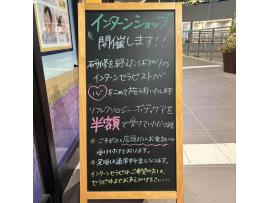 インターンショップ
開催します!!
研修を終えたばかりの
インターンセラピストが
心をこめて施術いたします!
リフレクソロジー・ボディケアを
半額で受けていただけます
※ご予約は店頭またはお電話で
受け付けております。
※延長は通常料金となります。
インターンセラピストご希望の方は、
セラピストまでお声がけ下さい!!